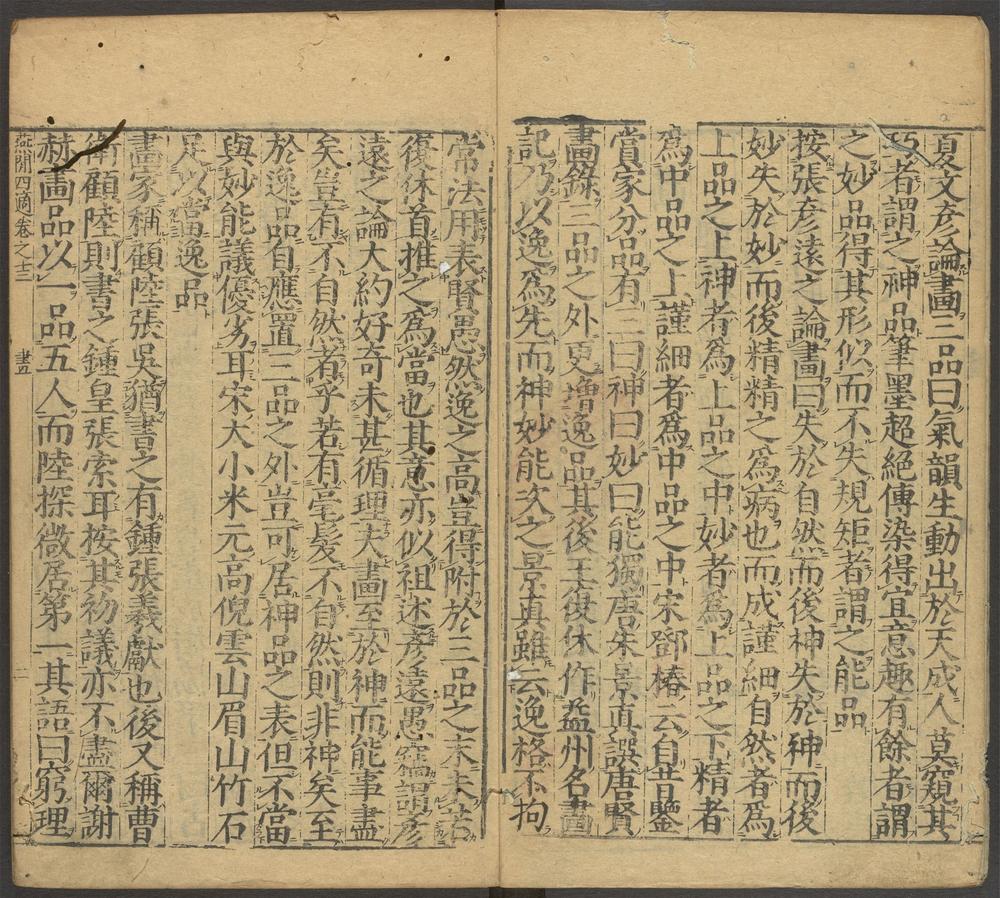 夏文彦論畫三品曰氣韻生動出於天成人莫窺其
巧者謂之神品筆墨超絕傳染得宜意趣有餘者謂
之妙品得其形似而不失規矩者謂之能品
按張彦遠之論畫曰失於自然而後神失於神而後
妙失於妙而後精精之爲病也而成謹細自然者爲
上品之上神者爲上品之中妙者爲上品之下精者
爲中品之上謹細者爲中品之中宋鄧椿云自昔鑒
賞家分品有三曰神曰妙曰能獨唐朱景真譔唐賢
畫錄三品之外更增逸品其後王復休作益州名畫
記乃以逸爲先而神妙能次之景真雖云逸格不拘
常法用表賢愚然逸之高豈得附於三品之末未若
復休首推之爲當也其意亦似祖述彦遠愚竊謂彦
遠之論大約好奇未甚循理夫畫至於神而能事盡
矣豈有不自然者乎若有毫髮不自然則非神矣至
於逸品自應置三品之外豈可居神品之表但不當
與妙能議優劣耳宋大小米元高倪雲山眉山竹石
足以當逸品
畫家稱顧陸張吳猶書之有鍾張羲獻也後又稱曹
衛顧陸則書之鍾皇張索耳按其初議亦不盡爾謝
赫畫品以一品五人而陸探微居第一其語曰窮理
燕閒四適卷之十二
畫五
二